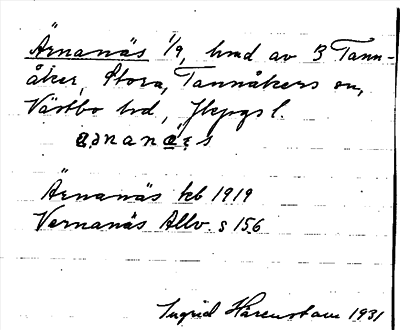 Ärnanäs 1/9, hmd av 3 Tann-
åker, Stora, Tannåkers sn,
Västbo hd, Jkpgs l.
Ärnanäs kb 1919
Vernanäs Allv s 156
Ingrid Hårenstam 1931